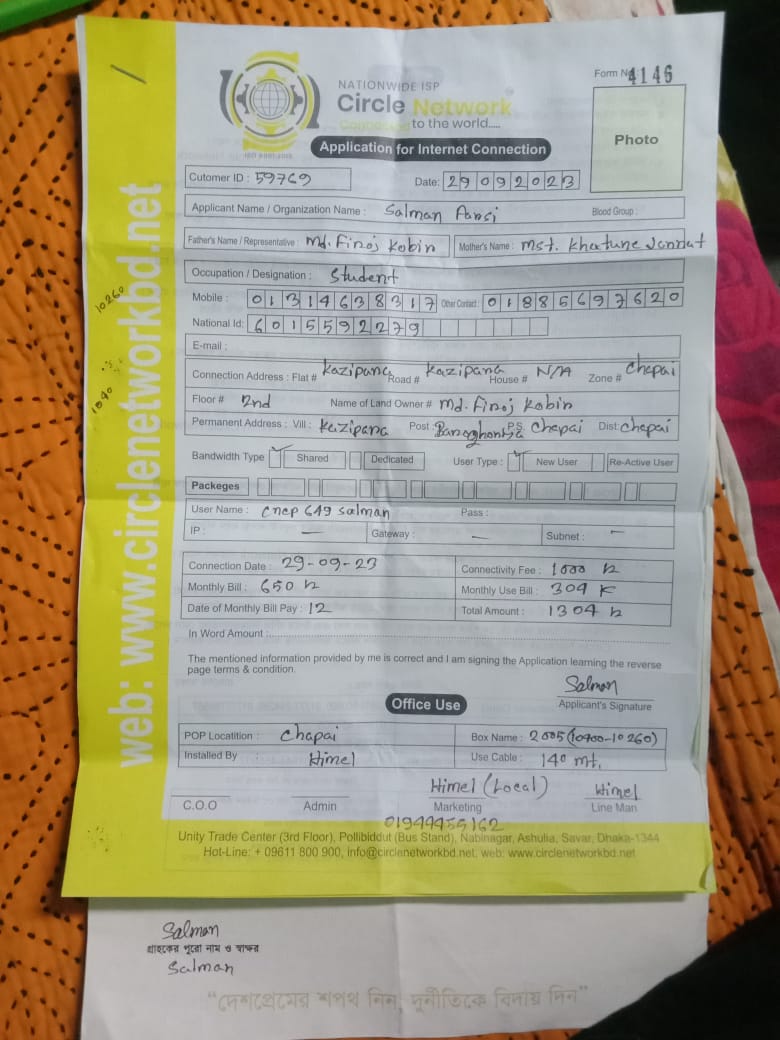 NATIONWIDE ISP
Circle Network
Connecting to the world.....
ISO 9001:2015
Form No 4146
Photo
Application for Internet Connection
Cutomer ID : 59769
Date: 29092023
Applicant Name / Organization Name : Salman Farsi Blood Group :
Father's Name / Representative : Md. Firoj Kobin Mother's Name : Mst. Khatune Jannat
Occupation / Designation : Student
Mobile : 01314638317 Other Contact : 01885697620
National Id: 6015592279
E-mail :
Connection Address : Flat # Kazipara Road # Kazipara House # N/A Zone # Chapai
Floor # 2nd Name of Land Owner # Md. Firoj Kobin
Permanent Address : Vill : Kazipara Post : P.S. Chapai Dist: Chapai
Bandwidth Type ✓ Shared Dedicated User Type : ✓ New User Re-Active User
Packeges
User Name : cnep 649 salman Pass :
IP : — Gateway : — Subnet : —
Connection Date : 29-09-23 Connectivity Fee : 1000 ৳
Monthly Bill : 650 ৳ Monthly Use Bill : 304 ৳
Date of Monthly Bill Pay : 12 Total Amount : 1304 ৳
In Word Amount :
The mentioned information provided by me is correct and I am signing the Application learning the reverse
page terms & condition.
Salman
Applicant's Signature
Office Use
POP Locatition : Chapai Box Name : 2005 (10400-10260)
Installed By : Himel Use Cable : 140 mt.
Himel (Local) Himel
C.O.O Admin Marketing Line Man
01944455162
Unity Trade Center (3rd Floor), Pollibiddut (Bus Stand), Nabinagar, Ashulia, Savar, Dhaka-1344
Hot-Line: + 09611 800 900, info@circlenetworkbd.net, web: www.circlenetworkbd.net
web: www.circlenetworkbd.net
10260
1040
Salman
গ্রাহকের পুরো নাম ও স্বাক্ষর
Salman
“দেশপ্রেমের শপথ নিন, দুর্নীতিকে বিদায় দিন”